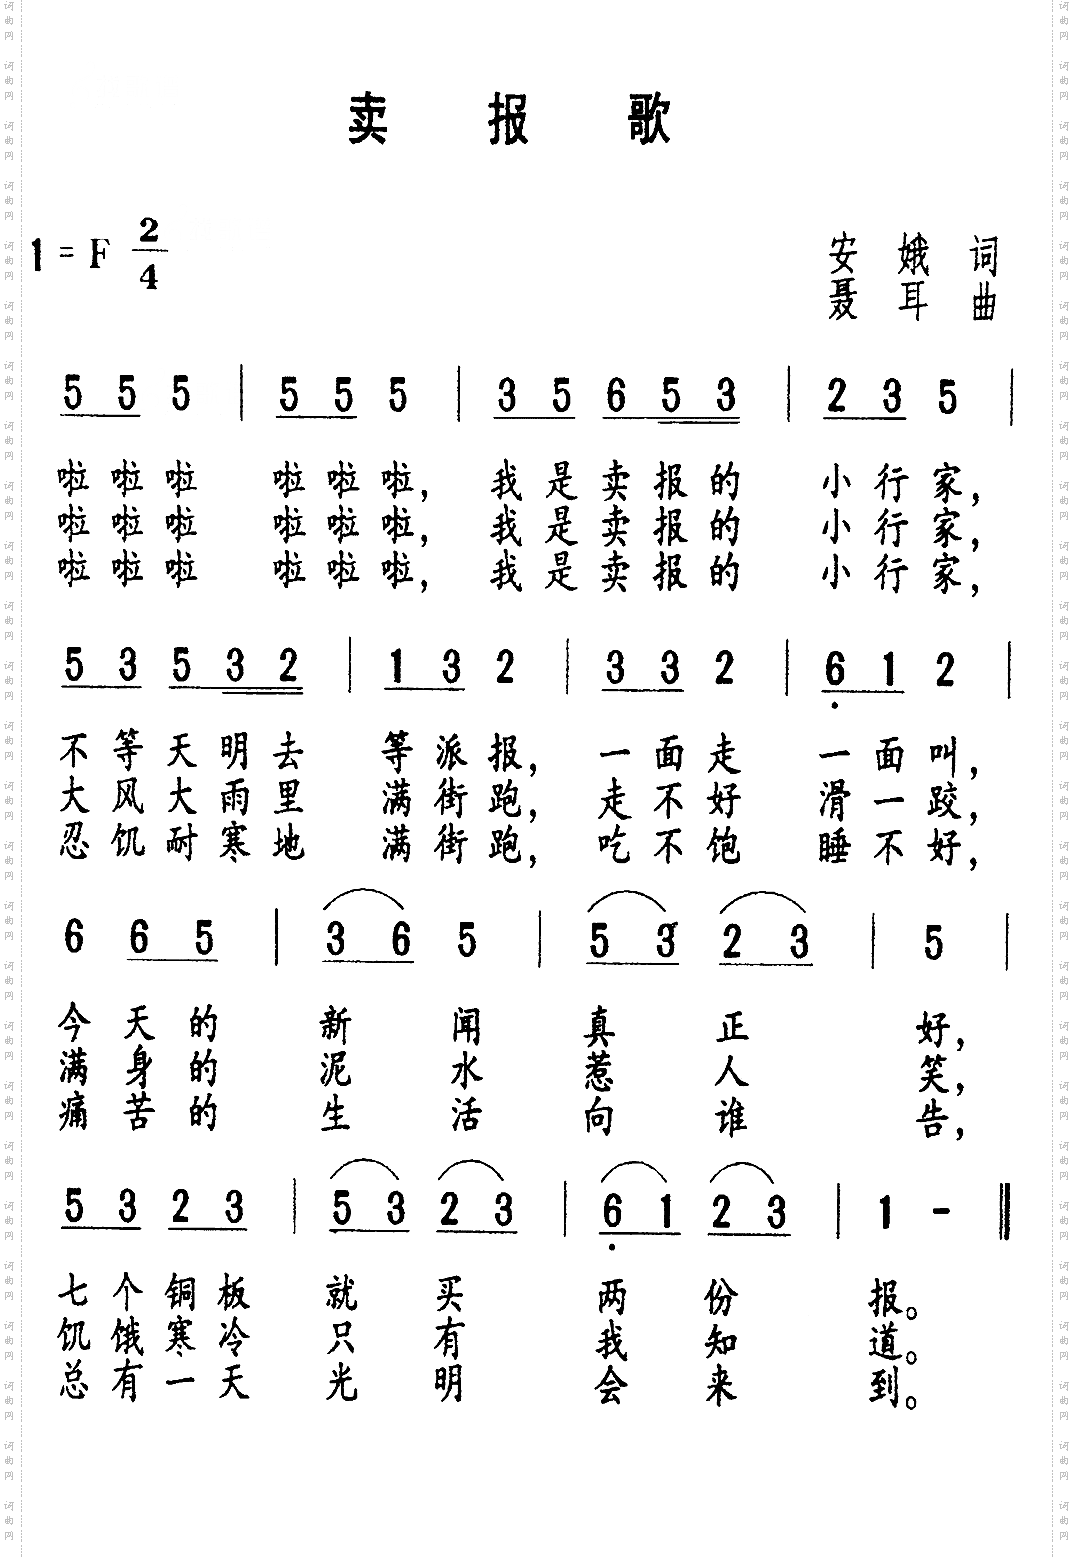 卖 报 歌
1 = F 2/4
安 娥 词
聂 耳 曲
5 5 5 | 5 5 5 | 3 5 6 5 3 | 2 3 5 |
啦 啦 啦 啦 啦 啦, 我 是 卖 报 的 小 行 家,
啦 啦 啦 啦 啦 啦, 我 是 卖 报 的 小 行 家,
啦 啦 啦 啦 啦 啦, 我 是 卖 报 的 小 行 家,
5 3 5 3 2 | 1 3 2 | 3 3 2 | 6̣ 1 2 |
不 等 天 明 去 等 派 报, 一 面 走 一 面 叫,
大 风 大 雨 里 满 街 跑, 走 不 好 滑 一 跤,
忍 饥 耐 寒 地 满 街 跑, 吃 不 饱 睡 不 好,
6 6 5 | 3 6 5 | 5 3 2 3 | 5 |
今 天 的 新 闻 真 正 好,
满 身 的 泥 水 惹 人 笑,
痛 苦 的 生 活 向 谁 告,
5 3 2 3 | 5 3 2 3 | 6̣ 1 2 3 | 1 - ‖
七 个 铜 板 就 买 两 份 报。
饥 饿 寒 冷 只 有 我 知 道。
总 有 一 天 光 明 会 来 到。
词曲网